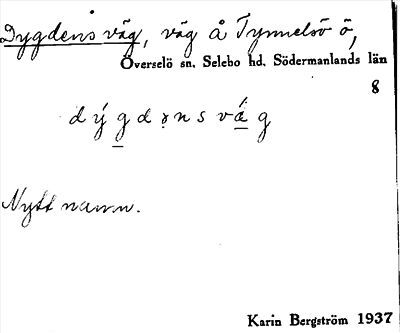 Dygdens väg, väg å Tynnelsö ö,
Överselö sn. Selebo hd. Södermanlands län
8
dýgdənsvæ̂g
Nytt namn.
Karin Bergström 1937